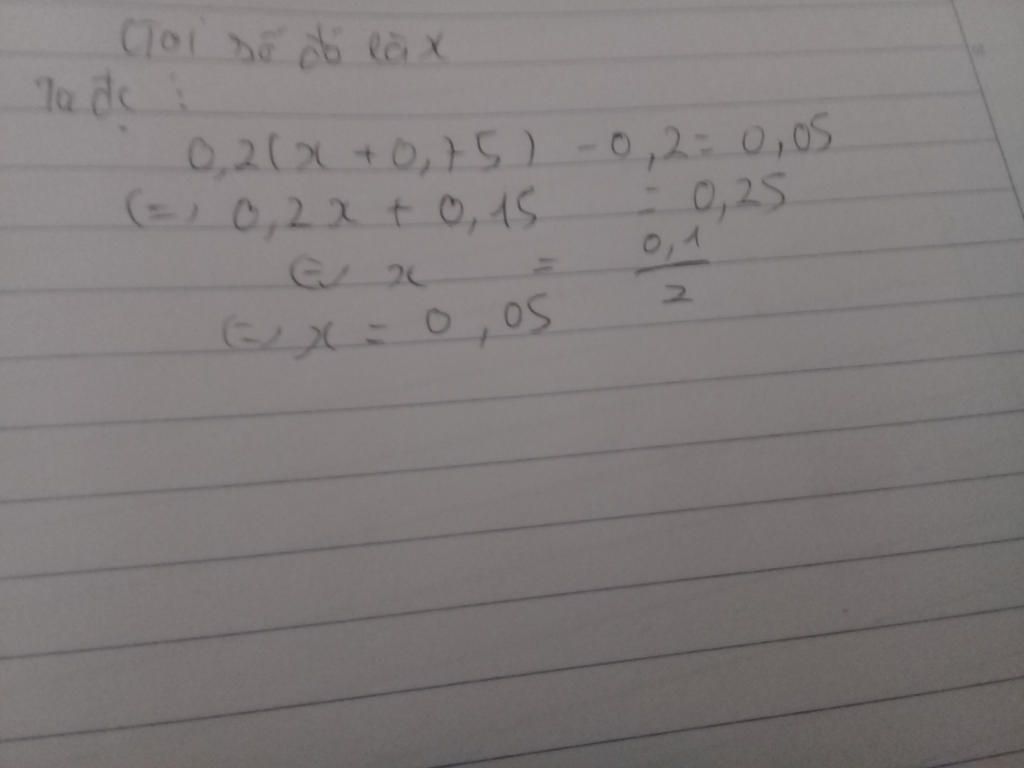 Gọi số đó là x
Ta đc :
0,2(x + 0,75) - 0,2 = 0,05
(=) 0,2x + 0,15 = 0,25
(=) x = 0,1/2
(=) x = 0,05